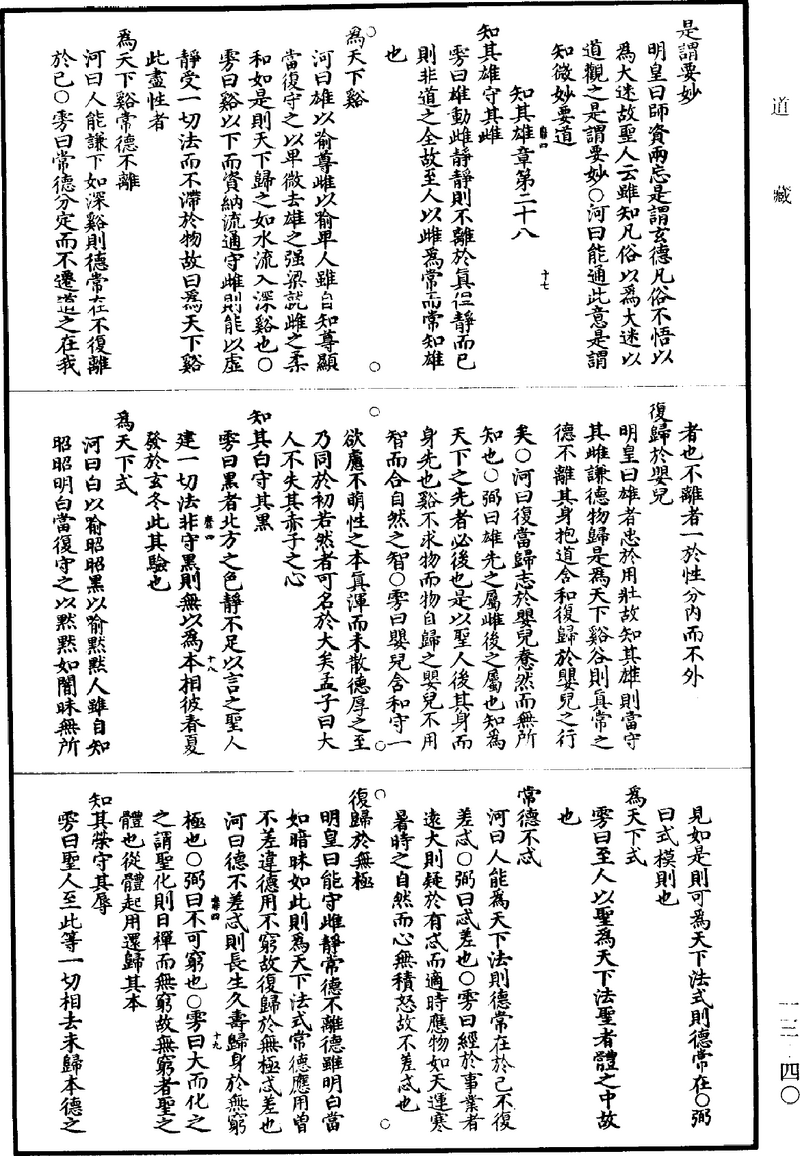 道藏
是謂要妙
明皇曰師資兩忘是謂玄德凡俗不悟以
為大迷故聖人云雖知凡俗以為大迷以
道觀之是謂要妙○河曰能通此意是謂
知微妙要道
知其雄章第二十八
知其雄守其雌
雱曰雄動雌靜靜則不離於真但靜而已
則非道之全故至人以雌為常而常知雄
也
為天下谿
河曰雄以喻尊雌以喻卑人雖自知尊顯
當復守之以卑微去雄之强梁就雌之柔
和如是則天下歸之如水流入深谿也○
雱曰谿以下而資納流通守雌則能以虛
靜受一切法而不滯於物故曰為天下谿
此盡性者
為天下谿常德不離
河曰人能謙下如深谿則德常在不復離
於已○雱曰常德分定而不遷道之在我
者也不離者一於性分內而不外
復歸於嬰兒
明皇曰雄者患於用壯故知其雄則當守
其雌謙德物歸是為天下谿谷則真常之
德不離其身抱道含和復歸於嬰兒之行
矣○河曰復當歸志於嬰兒惷然而無所
知也○弼曰雄先之屬雌後之屬也知為
天下之先者必後也是以聖人後其身而
身先也谿不求物而物自歸之嬰兒不用
智而合自然之智○雱曰嬰兒含和守一
欲慮不萌性之本真渾而未散德厚之至
乃同於初若然者可名於大矣孟子曰大
人不失其赤子之心
知其白守其黑
雱曰黑者北方之色靜不足以言之聖人
建一切法非守黑則無以為本相彼春夏
發於玄冬此其驗也
為天下式
河曰白以喻昭昭黑以喻黙黙人雖自知
昭昭明白當復守之以黙黙如闇昧無所
見如是則可為天下法式則德常在○弼
曰式模則也
為天下式
雱曰至人以聖為天下法聖者體之中故
也
常德不忒
河曰人能為天下法則德常在於己不復
差忒○弼曰忒差也○雱曰經於事業者
遠大則疑於有忒而適時應物如天運寒
暑時之自然而心無積怒故不差忒也
復歸於無極
明皇曰能守雌靜常德不離德雖明白當
如暗昧如此則為天下法式常德應用曾
不差違德用不窮故復歸於無極忒差也
河曰德不差忒則長生久壽歸身於無窮
極也○弼曰不可窮也○雱曰大而化之
之謂聖化則日禪而無窮故無窮者聖之
體也從體起用還歸其本
知其榮守其辱
雱曰聖人至此等一切相去未歸本德之
卷四
十七
卷四
十八
卷四
十九
一三·四〇